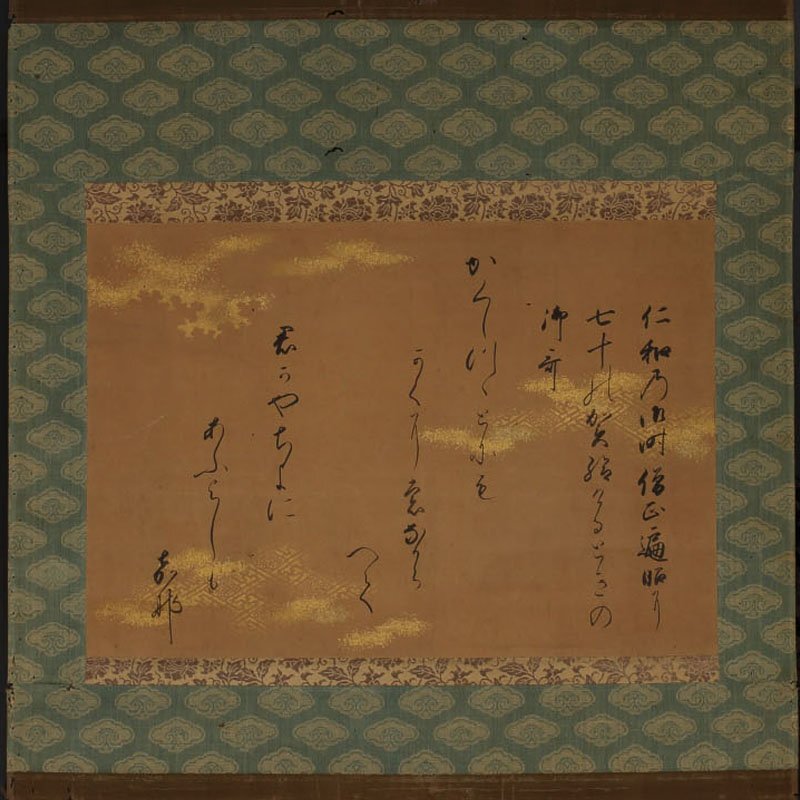 仁和乃御時僧正遍昭に
七十の賀給けるときの
御哥
かくしつゝとにも
かくにもなから
へて
君かやちよに
あふよしも
かな